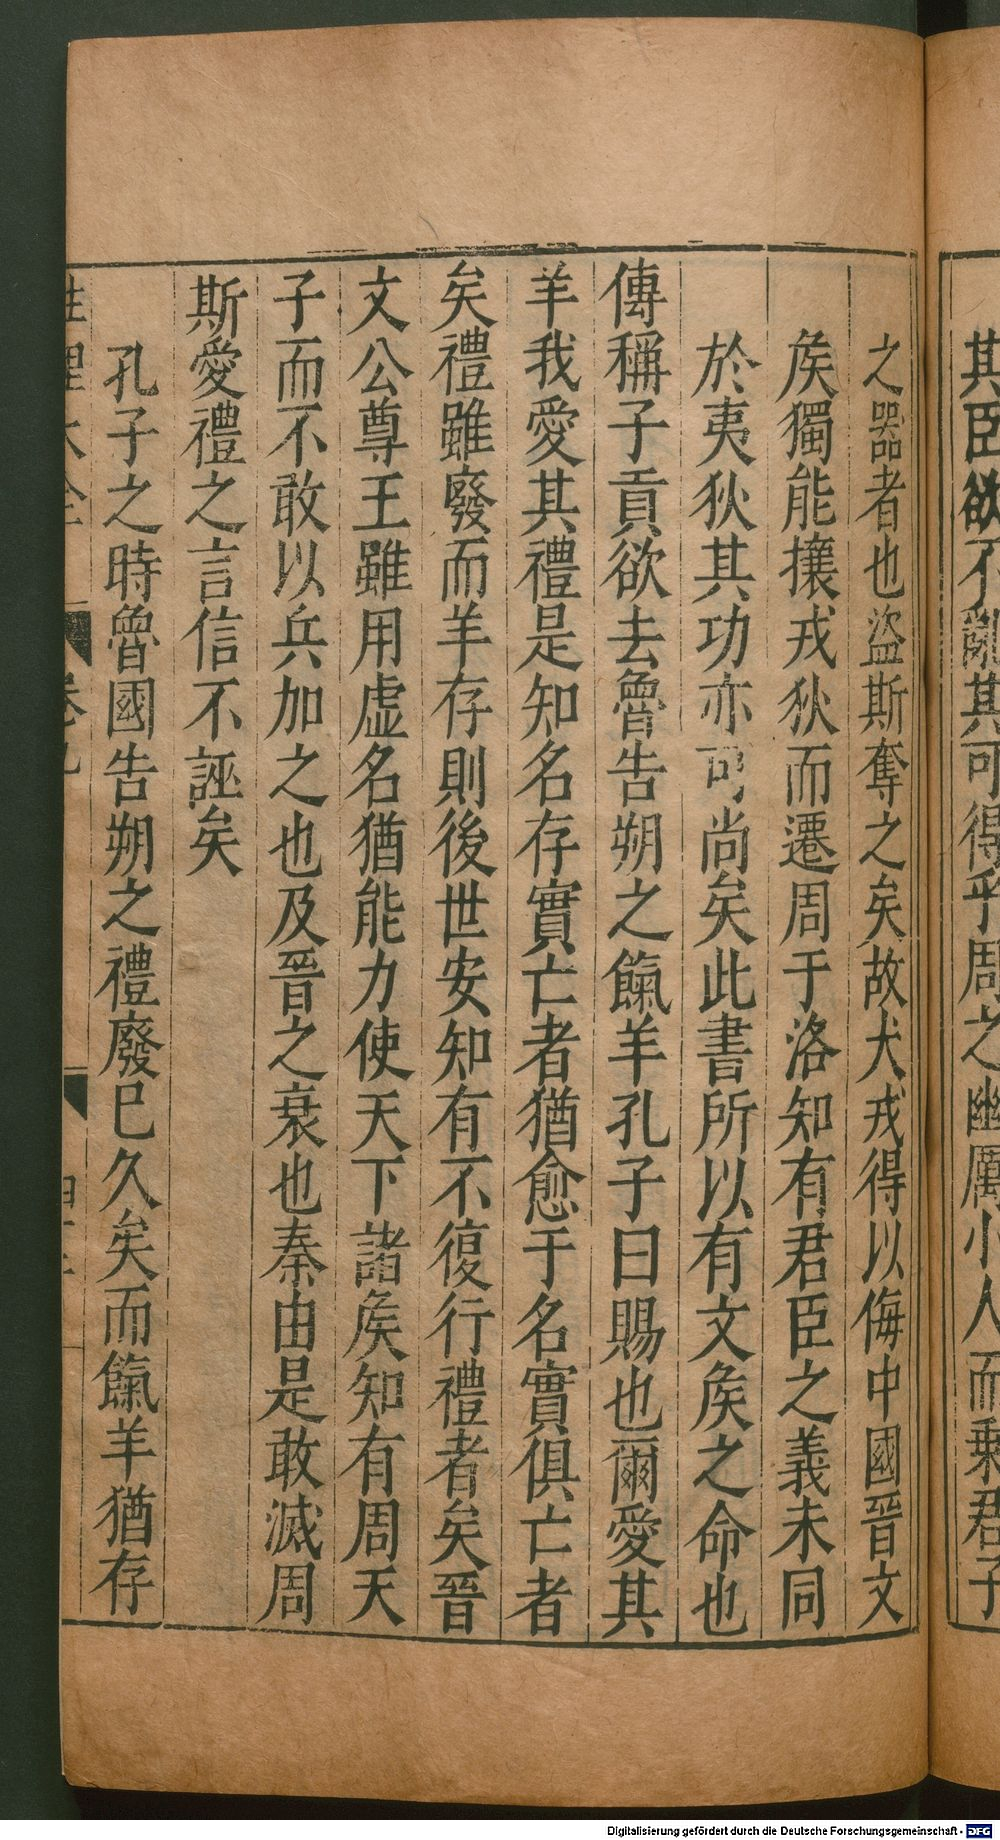 其臣欲不亂其可得乎周之幽厲小人而乘君子
之器者也盜斯奪之矣故犬戎得以侮中國晉文
矦獨能攘戎狄而遷周于洛知有君臣之義未同
於夷狄其功亦可尚矣此書所以有文矦之命也
傳稱子貢欲去魯告朔之餼羊孔子曰賜也爾愛其
羊我愛其禮是知名存實亡者猶愈于名實俱亡者
矣禮雖廢而羊存則後世安知有不復行禮者矣晉
文公尊王雖用虛名猶能力使天下諸矦知有周天
子而不敢以兵加之也及晉之衰也秦由是敢滅周
斯愛禮之言信不誣矣
孔子之時魯國告朔之禮廢已久矣而餼羊猶存
性理大全 卷九
Digitalisierung gefördert durch die Deutsche Forschungsgemeinschaft - DFG